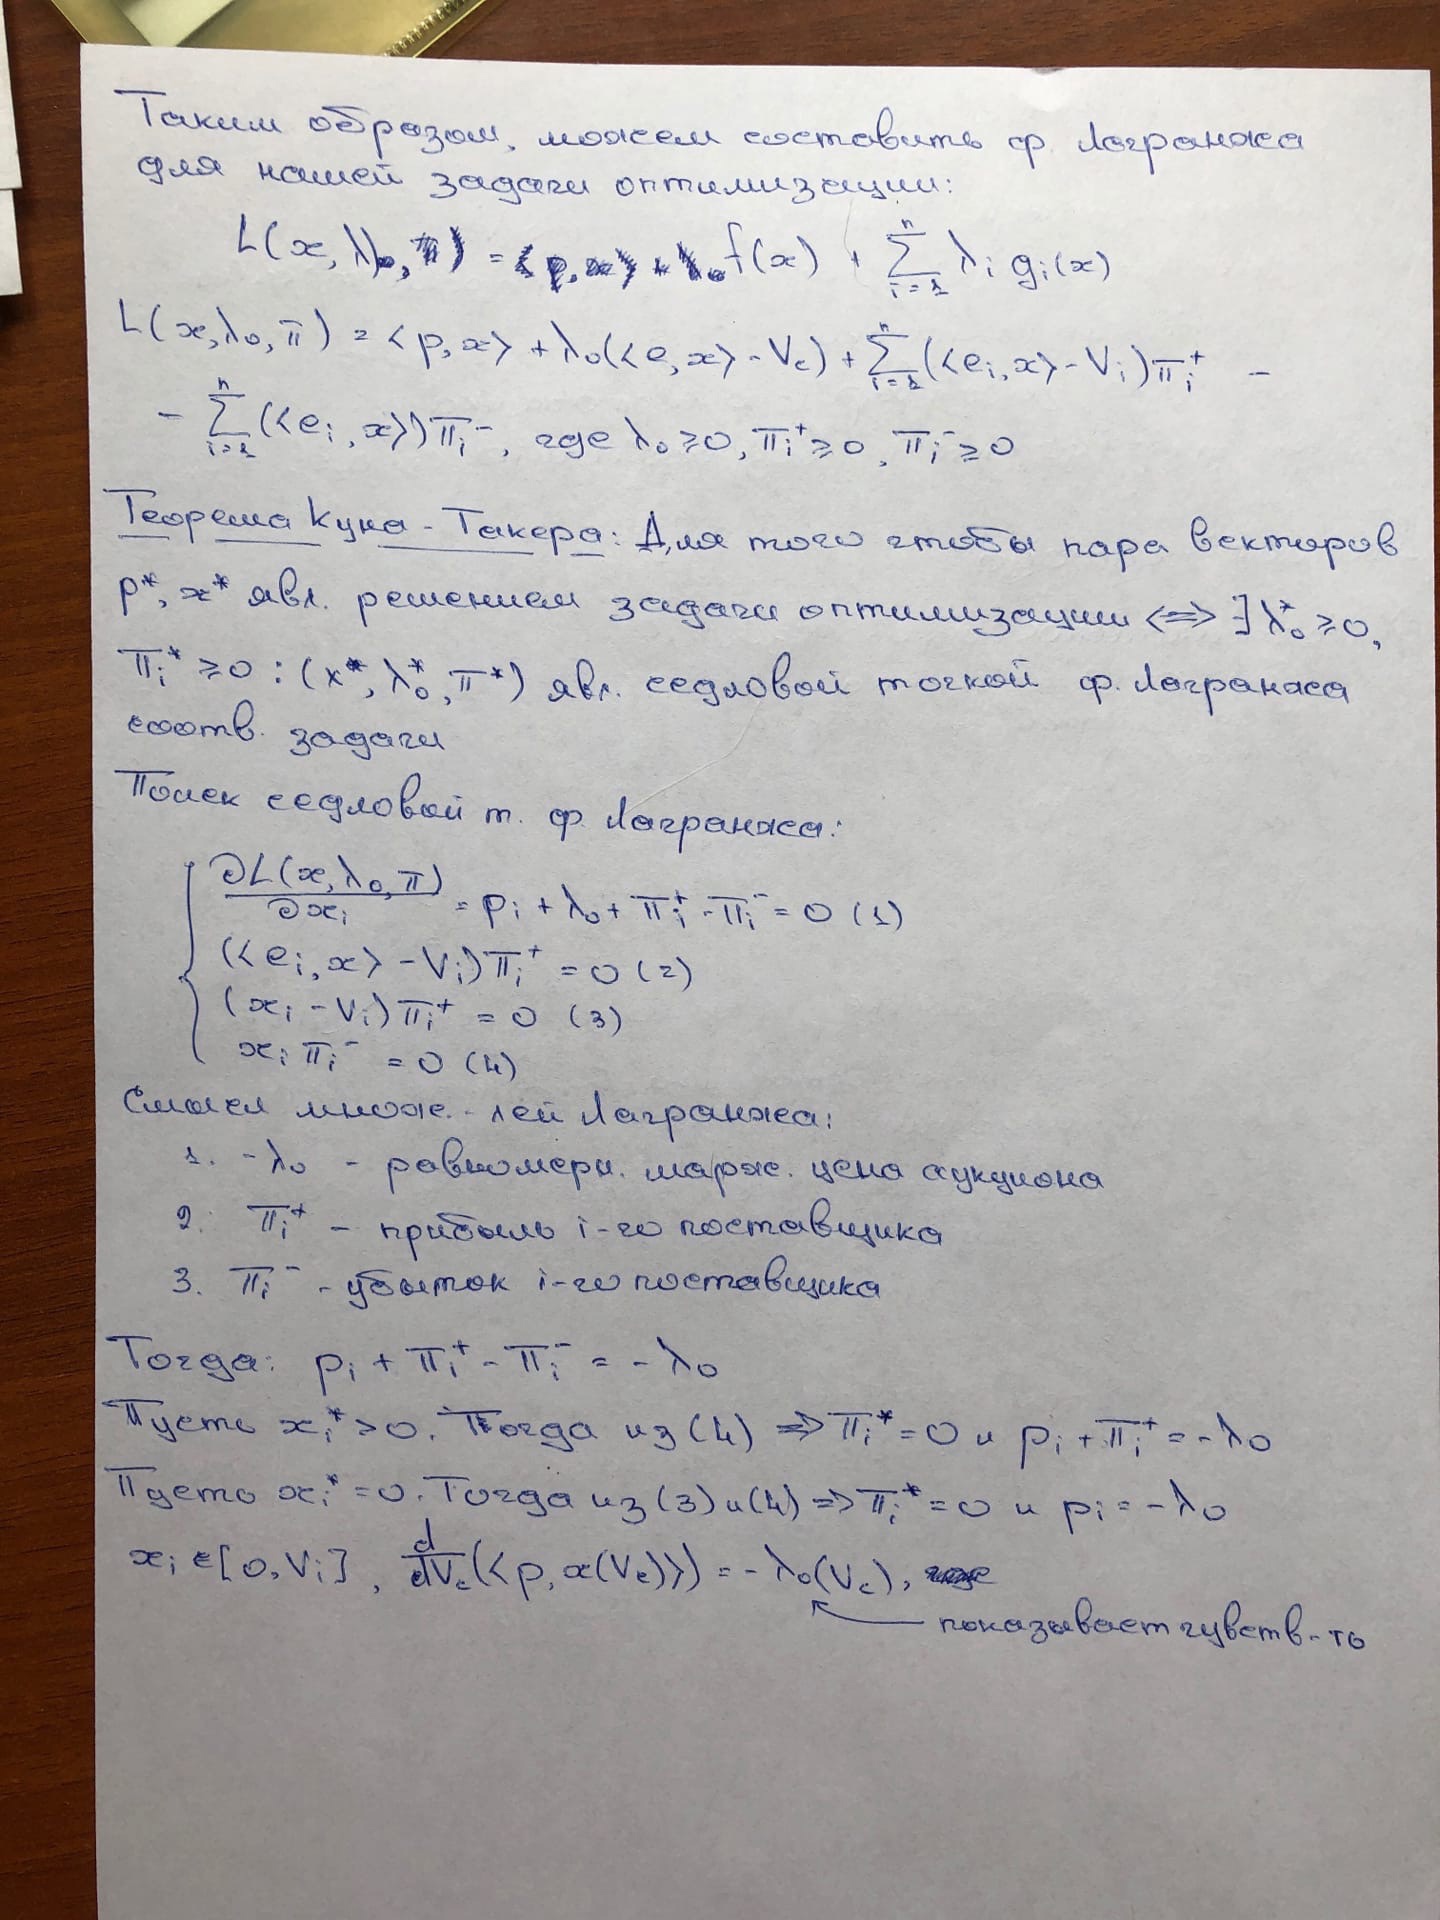 Таким образом, можем составить ф. Лагранжа
для нашей задачи оптимизации:
L(x, λ) = f(x) + ∑_{i=1}^{n} λ_i g_i(x)
L(x, λ₀, π) = <p, x> + λ₀(<e, x> - V_c) + ∑_{i=1}^{n} (<e_i, x> - V_i) π_i⁺ -
- ∑_{i=1}^{n} (<e_i, x>) π_i⁻, где λ₀ ≥ 0, π_i⁺ ≥ 0, π_i⁻ ≥ 0
Теорема Куна - Такера: Для того чтобы пара векторов
p*, x* явл. решением задачи оптимизации <=> ∃ λ₀* ≥ 0,
π_i* ≥ 0 : (x*, λ₀*, π*) явл. седловой точкой ф. Лагранжа
соотв. задачи
Поиск седловой т. ф. Лагранжа:
∂L(x, λ₀, π)/∂x_i = p_i + λ₀ + π_i⁺ - π_i⁻ = 0 (1)
(<e_i, x> - V_i) π_i⁺ = 0 (2)
(x_i - V_i) π_i⁺ = 0 (3)
x_i π_i⁻ = 0 (4)
Смысл множ.-лей Лагранжа:
1. -λ₀ - равномерн. марж. цена аукциона
2. π_i⁺ - прибыль i-го поставщика
3. π_i⁻ - убыток i-го поставщика
Тогда: p_i + π_i⁺ - π_i⁻ = -λ₀
Пусть x_i* > 0. Тогда из (4) => π_i* = 0 и p_i + π_i⁺ = -λ₀
Пусть x_i* = 0. Тогда из (3) и (4) => π_i* = 0 и p_i = -λ₀
x_i ∈ [0, V_i], d/dV_c (<p, x(V_c)>) = -λ₀(V_c),
показывает чувств-ть